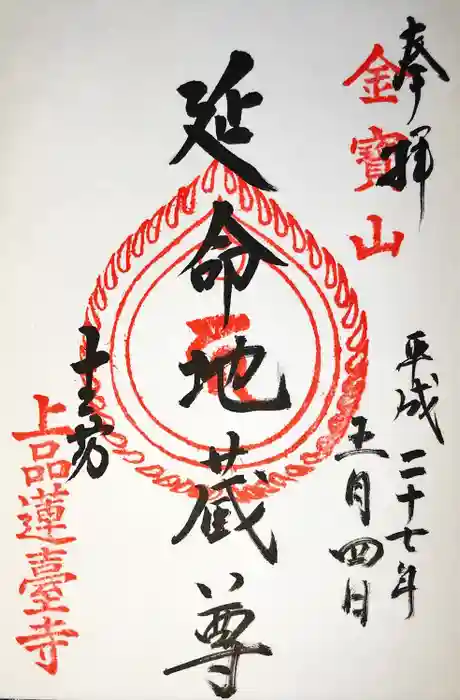 奉拝
金寶山
平成二十七年
五月四日
延命地蔵尊
十二坊
上品蓮臺寺